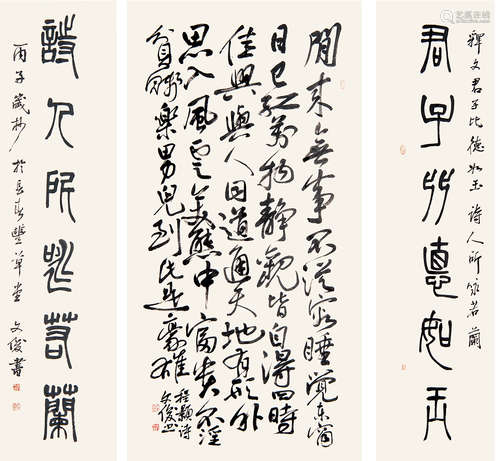 釋文君子比德如玉 詩人所詠若蘭
君子比德如玉
閒來無事不從容睡覺東窗
日已紅萬物靜觀皆自得四時
佳興與人同道通天地有形外
思入風雲變態中富貴不淫
貧賤樂男兒到此是豪雄
程顥詩
文俊書
詩人所詠若蘭
丙子歲杪於長春豐草堂 文俊書
艺狐在线